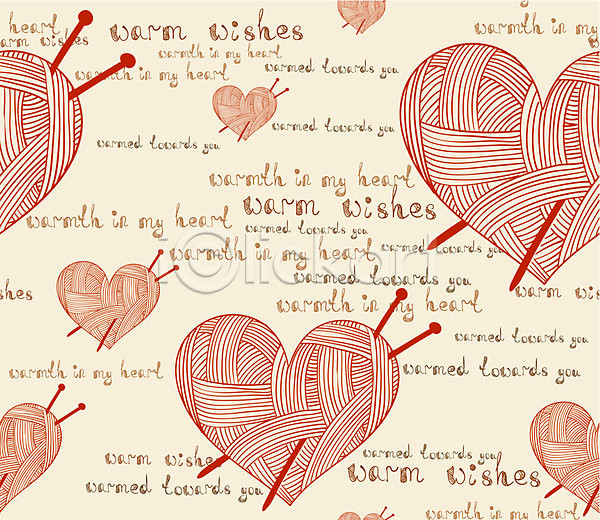 my heart
warm wishes
warm wishes
warmth in my heart
warmth in my heart
warmed towards you
warmed towards you
warmed towards you
warmth in my heart
warm wishes
warmth in my heart
warmed towards you
warmth in my heart
warmed towards you
warm wishes
warmth in my heart
warmed towards you
warmth in my heart
warmed towards you
warmed towards you
warm wishes
warm wishes
warmed towards you
warmth in my heart